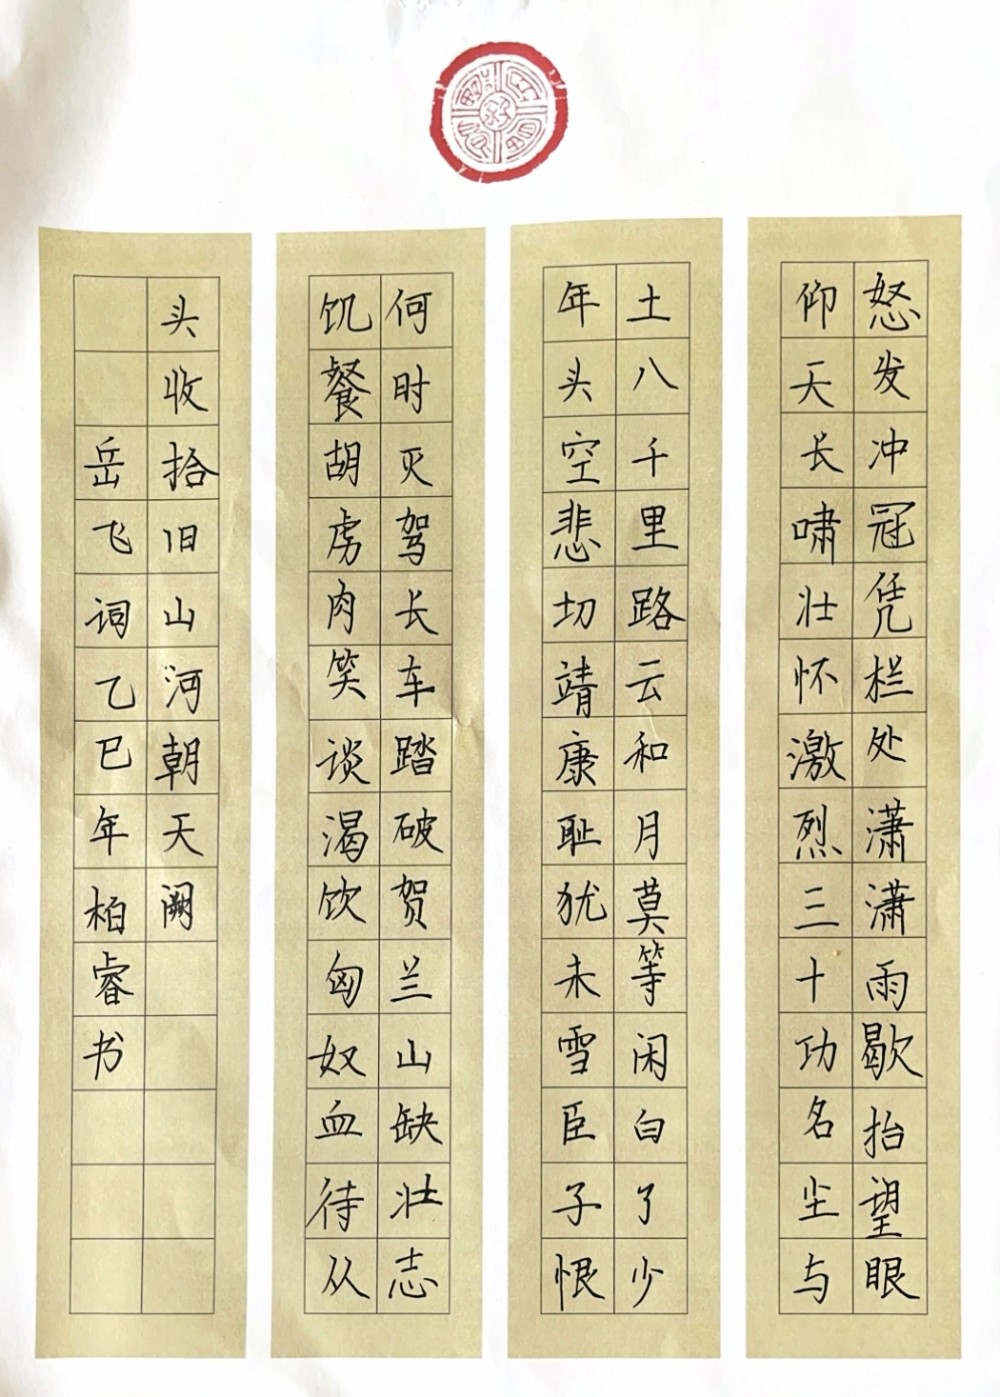 怒发冲冠凭栏处潇潇雨歇抬望眼
仰天长啸壮怀激烈三十功名尘与
土八千里路云和月莫等闲白了少
年头空悲切靖康耻犹未雪臣子恨
何时灭驾长车踏破贺兰山缺壮志
饥餐胡虏肉笑谈渴饮匈奴血待从
头收拾旧山河朝天阙
岳飞词乙巳年柏睿书